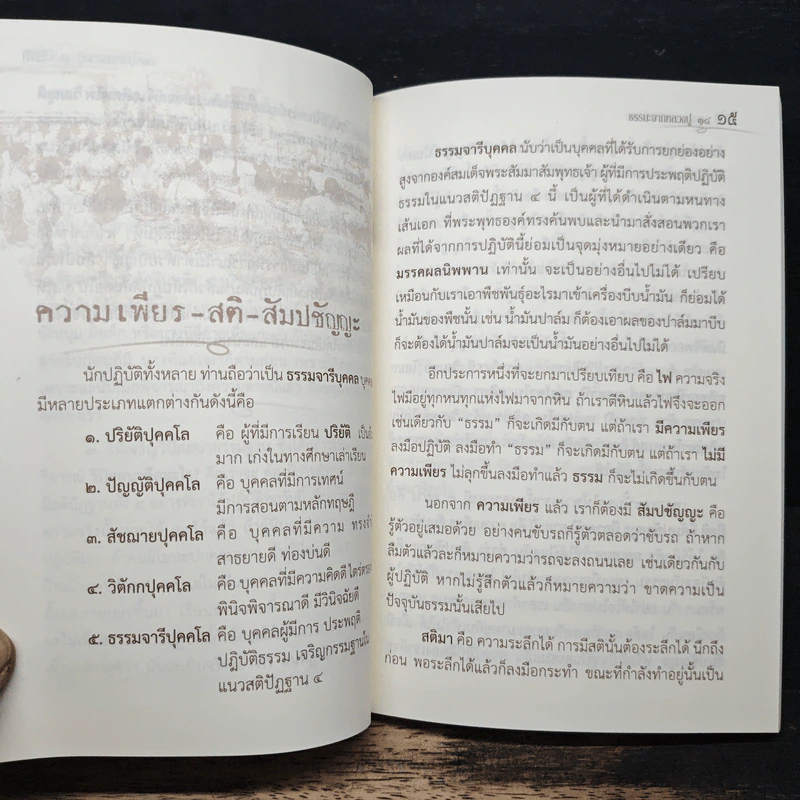 ความเพียร-สติ-สัมปชัญญะ
นักปฏิบัติทั้งหลาย ท่านถือว่าเป็น ธรรมจารีบุคคล
มีหลายประเภทแตกต่างกันดังนี้คือ
๑. ปริยัติปุคคโล คือ ผู้ที่มีการเรียน ปริยัติ
มาก เก่งในทางศึกษาเล่าเรียน
๒. ปัญญัติปุคคโล คือ บุคคลที่มีการเทศน์
มีการสอนตามหลักทฤษฎี
๓. สัชฌายปุคคโล คือ บุคคลที่มีความ
สาธยายดี ท่องบ่นดี
๔. วิตักกปุคคโล คือ บุคคลที่มีความคิดดี
พินิจพิจารณาดี มีวินิจฉัยดี
๕. ธรรมจารีปุคคโล คือ บุคคลผู้มีการ ประพฤติ
ปฏิบัติธรรม เจริญกรรมฐานใน
แนวสติปัฏฐาน ๔
ธรรมะจากหลวงปู่ ๑๔ ๑๕
ธรรมจารีบุคคล นับว่าเป็นบุคคลที่ได้รับการยกย่องอย่าง
สูงจากองค์สมเด็จพระสัมมาสัมพุทธเจ้า ผู้ที่มีการประพฤติปฏิบัติ
ธรรมในแนวสติปัฏฐาน ๔ นี้ เป็นผู้ที่ได้ดำเนินตามหนทาง
เส้นเอก ที่พระพุทธองค์ทรงค้นพบและนำมาสั่งสอนพวกเรา
ผลที่ได้จากการปฏิบัตินี้ย่อมเป็นจุดมุ่งหมายอย่างเดียว คือ
มรรคผลนิพพาน เท่านั้น จะเป็นอย่างอื่นไปไม่ได้ เปรียบ
เหมือนกับเราเอาพืชพันธุ์อะไรมาเข้าเครื่องบีบน้ำมัน ก็ย่อมได้
น้ำมันของพืชนั้น เช่น น้ำมันปาล์ม ก็ต้องเอาผลของปาล์มมาบีบ
ก็จะต้องได้น้ำมันปาล์มจะเป็นน้ำมันอย่างอื่นไปไม่ได้
อีกประการหนึ่งที่จะยกมาเปรียบเทียบ คือ ไฟ ความจริง
ไฟมีอยู่ทุกหนทุกแห่งไฟมาจากหิน ถ้าเราตีหินแล้วไฟจึงจะออก
เช่นเดียวกับ “ธรรม” ก็จะเกิดมีกับตน แต่ถ้าเรา มีความเพียร
ลงมือปฏิบัติ ลงมือทำ “ธรรม” ก็จะเกิดมีกับตน แต่ถ้าเรา ไม่มี
ความเพียร ไม่ลุกขึ้นลงมือทำแล้ว ธรรม ก็จะไม่เกิดขึ้นกับตน
นอกจาก ความเพียร แล้ว เราก็ต้องมี สัมปชัญญะ คือ
รู้ตัวอยู่เสมอด้วย อย่างคนขับรถก็รู้ตัวตลอดว่าขับรถ ถ้าหาก
ลืมตัวแล้วละก็หมายความว่ารถจะลงถนนเลย เช่นเดียวกันกับ
ผู้ปฏิบัติ หากไม่รู้สึกตัวแล้วก็หมายความว่า ขาดความเป็น
ปัจจุบันธรรมนั้นเสียไป
สติมา คือ ความระลึกได้ การมีสตินั้นต้องระลึกได้ นึกถึง
ก่อน พอระลึกได้แล้วก็ลงมือกระทำ ขณะที่กำลังทำอยู่นั้นเป็น